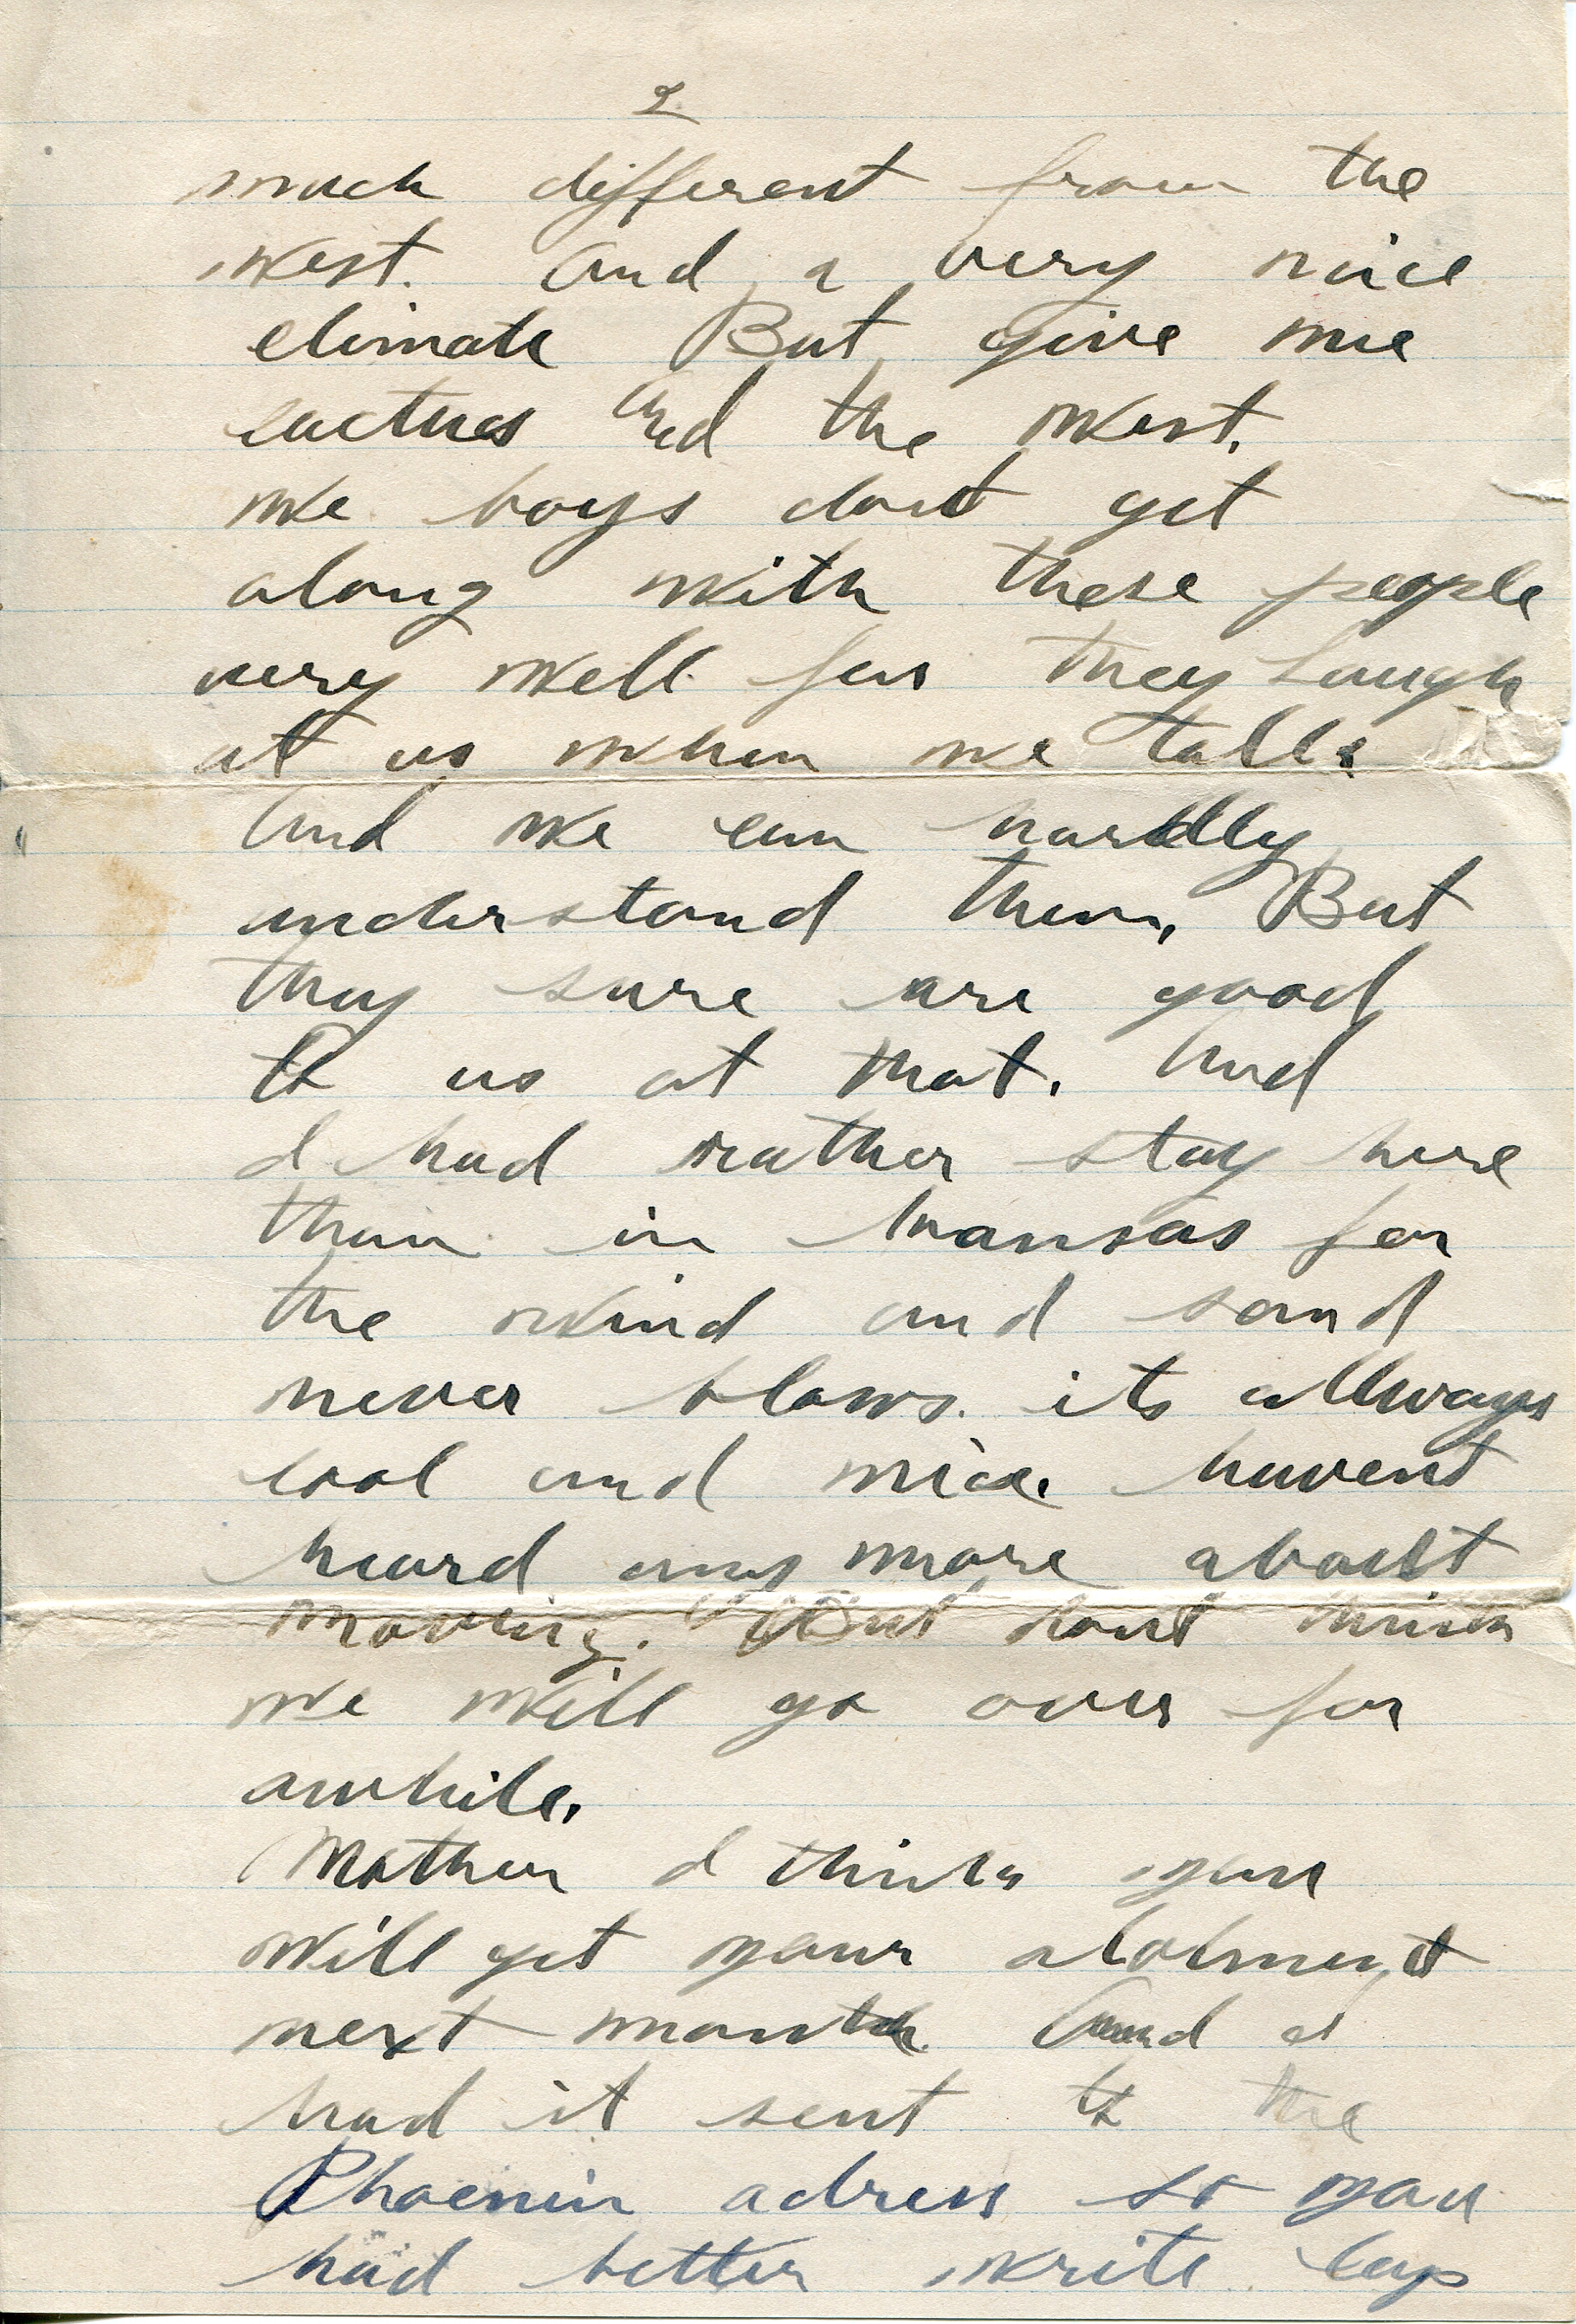 2
much different from the
West. And a very nice
climate But give me
cactus and the West.
We boys dont get
along with these people
very well for they laugh
at us when we talk.
And we can hardly
understand them, But
they sure are good
to us at that. And
I had rather stay here
than in Kansas for
the wind and sand
never blows. its allways
cool and nice. havent
heard any more about
moving. But dont think
we will go over for
awhile.
Mother I think you
will get your alotment
next month. And I
had it sent to the
Phoenix adress so you
had better write